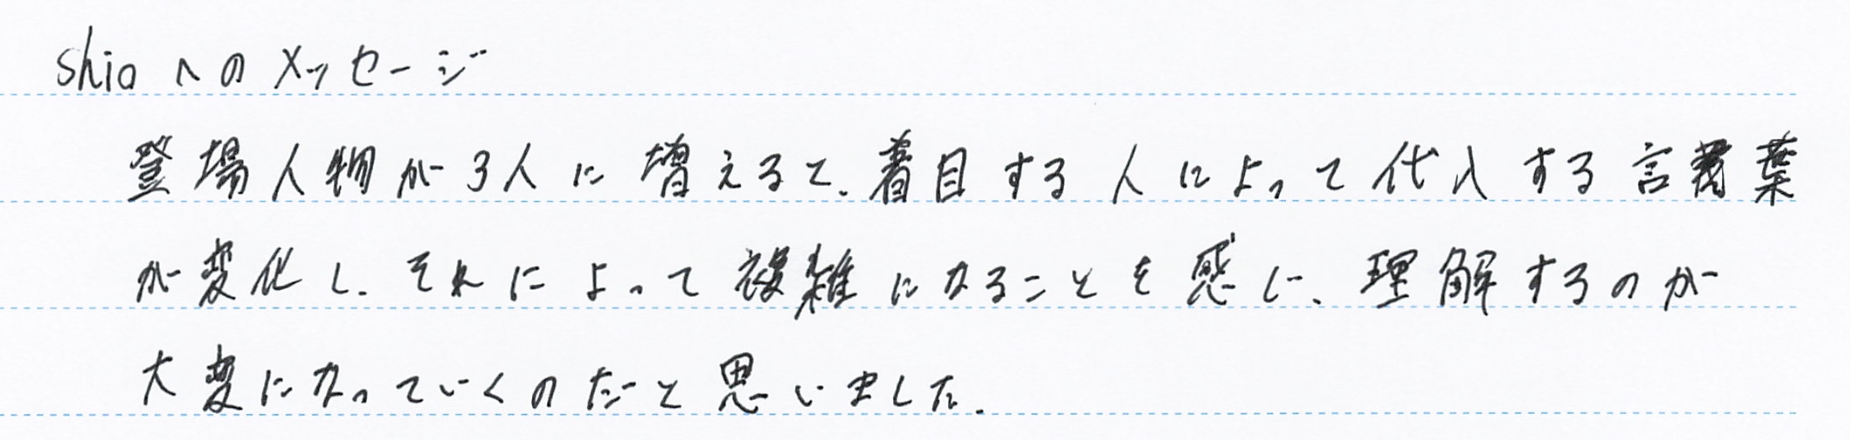 shioへのメッセージ
登場人物が3人に増えると、着目する人によって代入する言葉
が変化し、それによって複雑になることを感じ、理解するのが
大変になっていくのだと思いました。